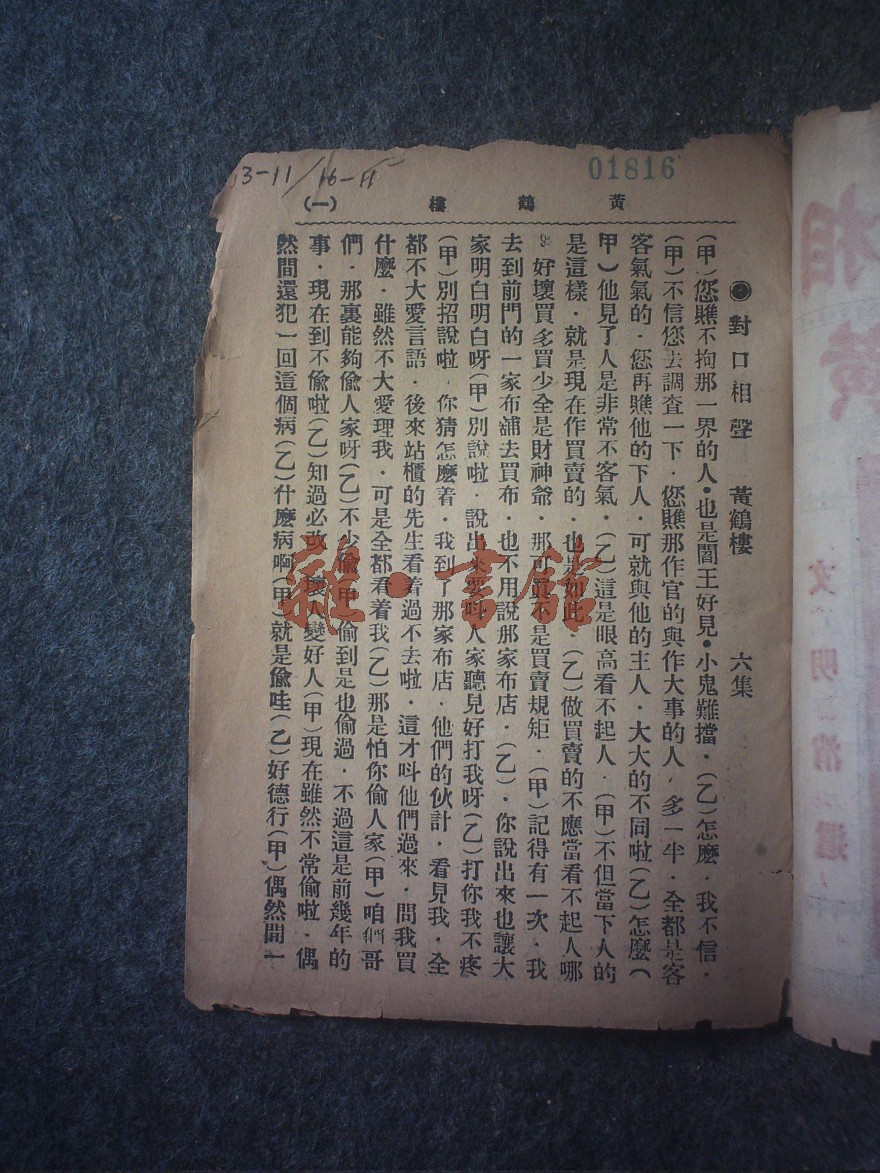 3-11/16-11
01816
黃鶴樓 (一)
●對口相聲 黃鶴樓 六集
(甲)您瞧不拘那一界的人•也是閻王好見•小鬼難擋•(乙)怎麽•我不信•
(甲)不信您去調查一下•您瞧那作官的與作大事的人•多一半•全都是客
客氣氣的•您再瞧他的下人•可就與他的主人•大大的不同啦(乙)怎麽(
甲)他見了人是非常不客氣•(乙)這是眼高看不起人•(甲)不但當下人的
是這樣•就是現在作買賣的•也是如此•(乙)做買賣的不應當看不起人哪
好壞買多買少全是財神爺•那可眞不是買賣規矩•(甲)記得有一次•我
去到前門的一家布浦去買布•也不用說那家布店•(乙)•你說出來也讓大
家明白明白呀(甲)別說啦•說出來要呌人家聽見好打我呀(乙)打你我不疼
(甲)別招說啦•你猜怎麽着•我到了那家布店•他們的伙計•看見我•全
都不大愛言語•後來站櫃的先生看着過不去啦•這才呌他們過來•問我買
什麽•雖然不大愛理我•可是全都看着我(乙)那是怕你偷人家(甲)咱們哥
們•那裏能夠偷人家呀(乙)不少偷(甲)偷到是也偷過•不過這是前幾年的
事•現在到不偷啦(乙)知過必改•壞人變好人(甲)現在雖然不常偷啦•偶
然間還犯一回這個病(乙)什麽病啊(甲)就是偷哇(乙)好德行(甲)偶然間一
雜·書館
相
文明消遣